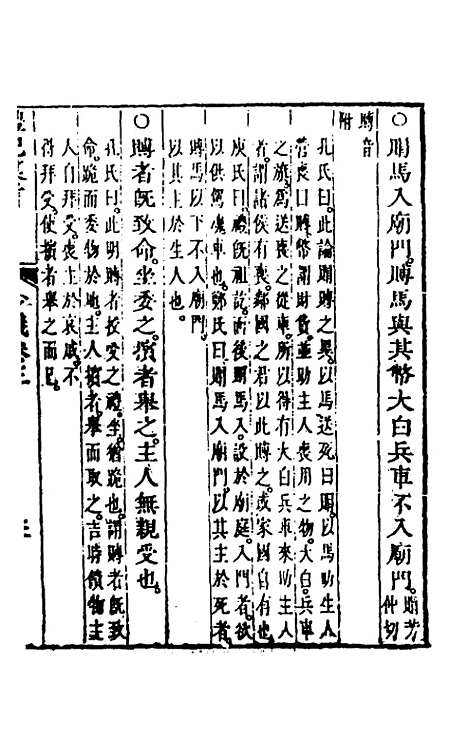 ○賵馬入廟門。賻馬與其幣大白兵車不入廟門。賵芳仲切
賻音附
孔氏曰。此論賵賻之異。以馬送死曰賵。以馬助生人
營喪曰賻。幣謂財貨。並助主人喪用之物。大白。兵車
之旗。為送喪之從車。所以得有大白兵車來助主人
者。謂諸侯有喪。鄰國之君以此賻之。或家國自有也。
庾氏曰。禮既祖訖。而後賵馬入設於廟庭。入門者。欲
以供駕魂車也。鄭氏曰。賵馬入廟門。以其主於死者。
賻馬以下不入廟門。
以其主於生人也。
○賻者既致命。坐委之。擯者舉之。主人無親受也。
孔氏曰。此明賻者授受之禮。坐猶跪也。謂賻者既致
命。跪而委物於地。主人擯者舉而取之。吉時饋物主
人自拜受。喪主於哀戚。不
得拜受。使擯者舉之而已。